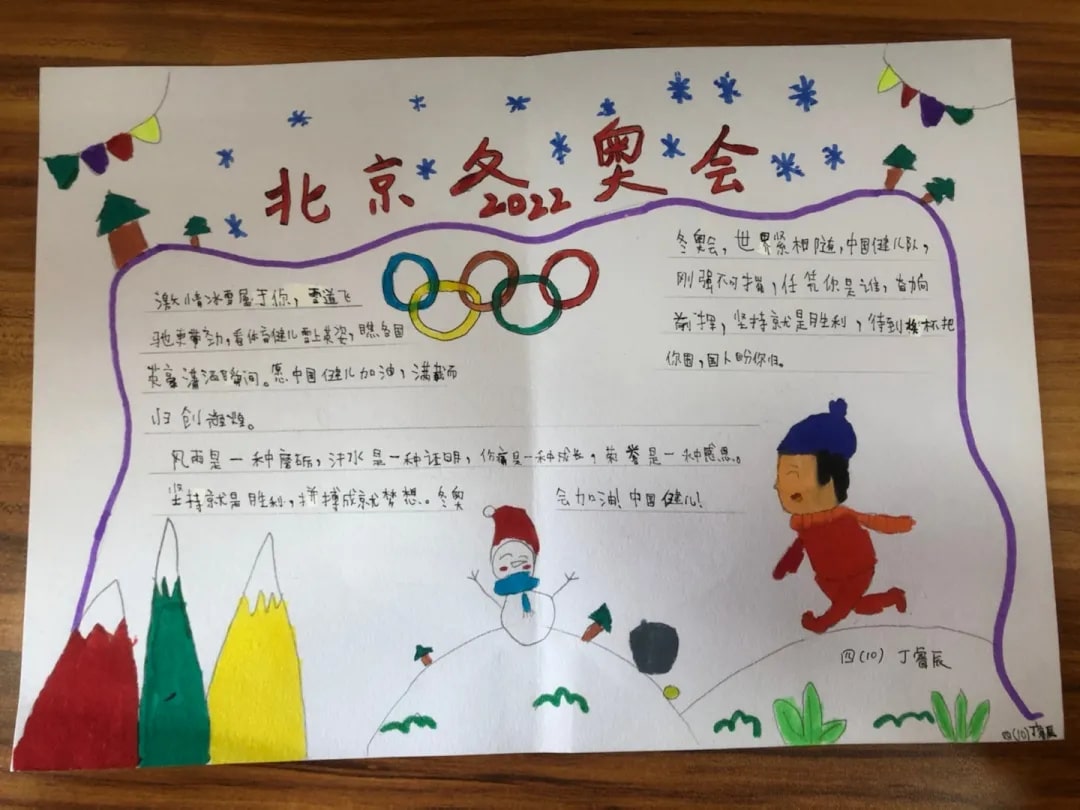 北京冬奥会
2022
激情冰雪属于你，雪道飞
驰更带劲，看体育健儿雪上英姿，瞧各国
英豪潇洒瞬间。愿中国健儿加油，满载而
归创辉煌。
风雨是一种磨砺，汗水是一种证明，伤痛是一种成长，荣誉是一种感恩。
坚持就是胜利，拼搏成就梦想。冬奥会加油！中国健儿！
冬奥会，世界紧相随，中国健儿队，
刚强不可摧，任凭你是谁，奋力向
前挥，坚持就是胜利，待到 杯把
你围，国人盼你归。
四(10) 丁睿辰
四(10)丁睿辰